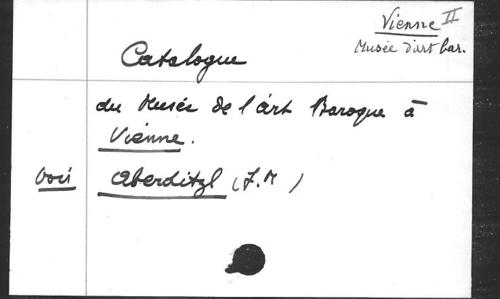 Vienne II
Musée d'art bar.
Catalogue
du Musée de l'art Baroque à
Vienne.
Voir Aberditzl (F. M )